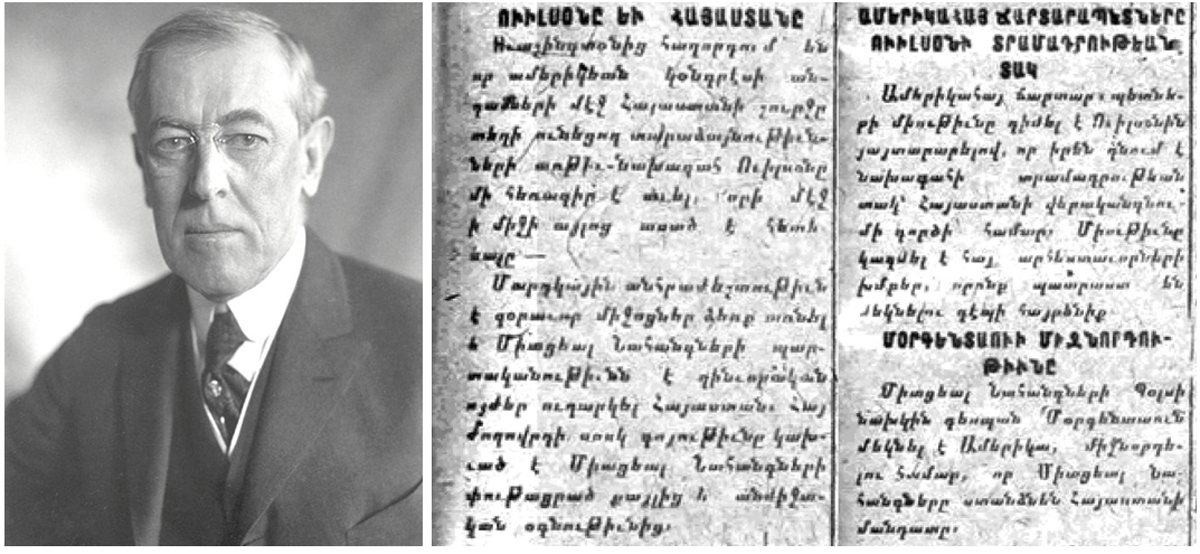 ՈՒԻԼՍՕՆԸ ԵՒ ՀԱՅԱՍՏԱՆԸ
Վաշինգտօնից հաղորդում են
որ ամերիկեան կօնգրէսի ան-
դամների մէջ Հայաստանի շուրջը
տեղի ունեցող տարաձայնութիւն-
ների առթիւ նախագահ Ուիլսօնը
մի հեռագիր է տուել, որի մէջ
ի միջի այլոց ասած է հետե-
եալը —
Մարդկային անհրաժեշտութիւն
է զօրաւոր միջոցներ ձեռք առնել
և Միացեալ Նահանգների պար-
տականութիւնն է զինւորական
ոյժեր ուղարկել Հայաստան։ Հայ
ժողովրդի սոսկ գոյութիւնը կախ-
ւած է Միացեալ Նահանգների
փութացրած քայլից և անմիջա-
կան օգնութիւնից։
ԱՄԵՐԻԿԱՀԱՅ ՃԱՐՏԱՐԱՊԵՏՆԵՐԸ
ՈՒԻԼՍՕՆԻ ՏՐԱՄԱԴՐՈՒԹԵԱՆ
ՏԱԿ
Ամերիկահայ ճարտարապետնե-
րի միութիւնը դիմել է Ուիլսօնին
յայտարարելով, որ իրեն դնում է
նախագահի տրամադրութեան
տակ՝ Հայաստանի վերականգնու-
մի գործի համար։ Միութիւնը
կազմել է հայ արհեստաւորների
խմբեր, որոնք պատրաստ են
մեկնելու դէպի հայրենիք
ՄՕՐԳԵՆՏԱՈՒԻ ՄԻՋՆՈՐԴՈՒ-
ԹԻՒՆԸ
Միացեալ Նահանգների Պօլսի
նախկին դեսպան Մօրգենտաուն
մեկնել է Ամերիկա, միջնորդե-
լու համար, որ Միացեալ Նա-
հանգները ստանձնեն Հայաստանի
մանդատը։